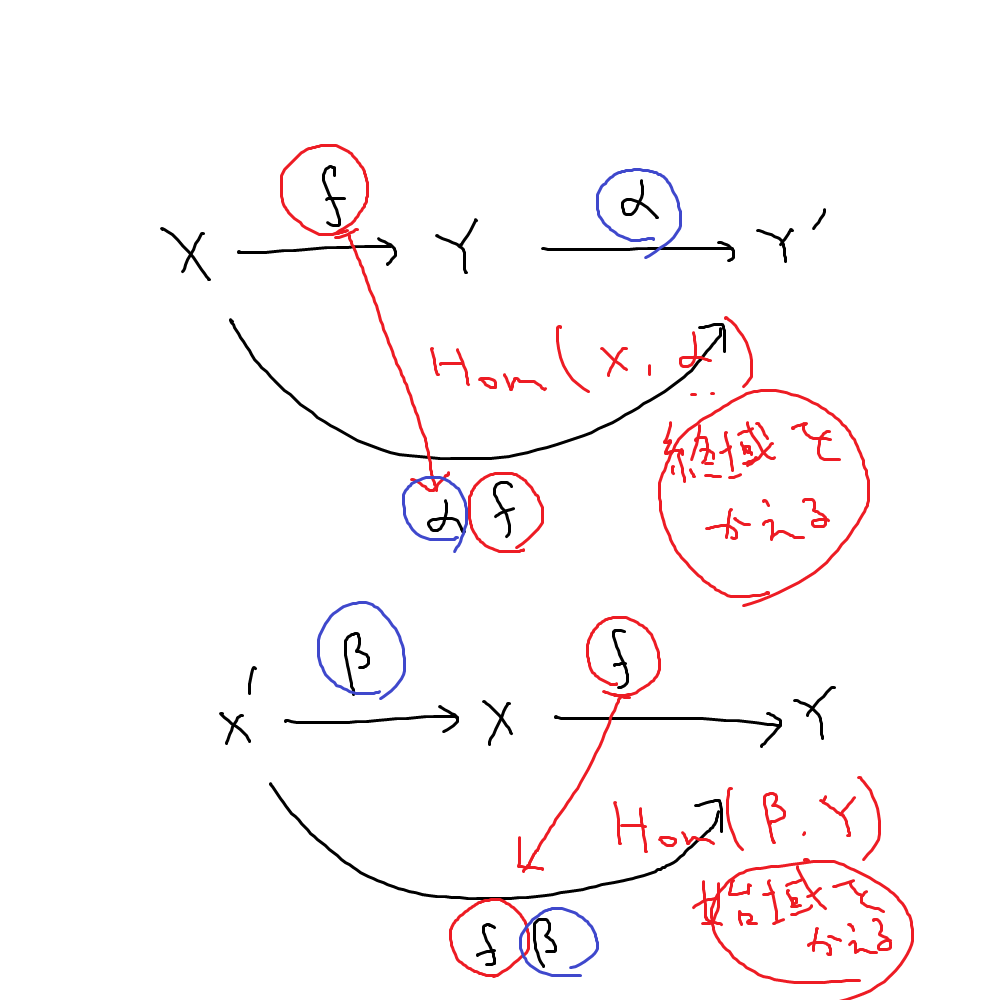 f α
X → Y → Y'
Hom(X, α)
終域を
かえる
αf
β f
X' → X → Y
Hom(β, Y)
始域を
かえる
fβ